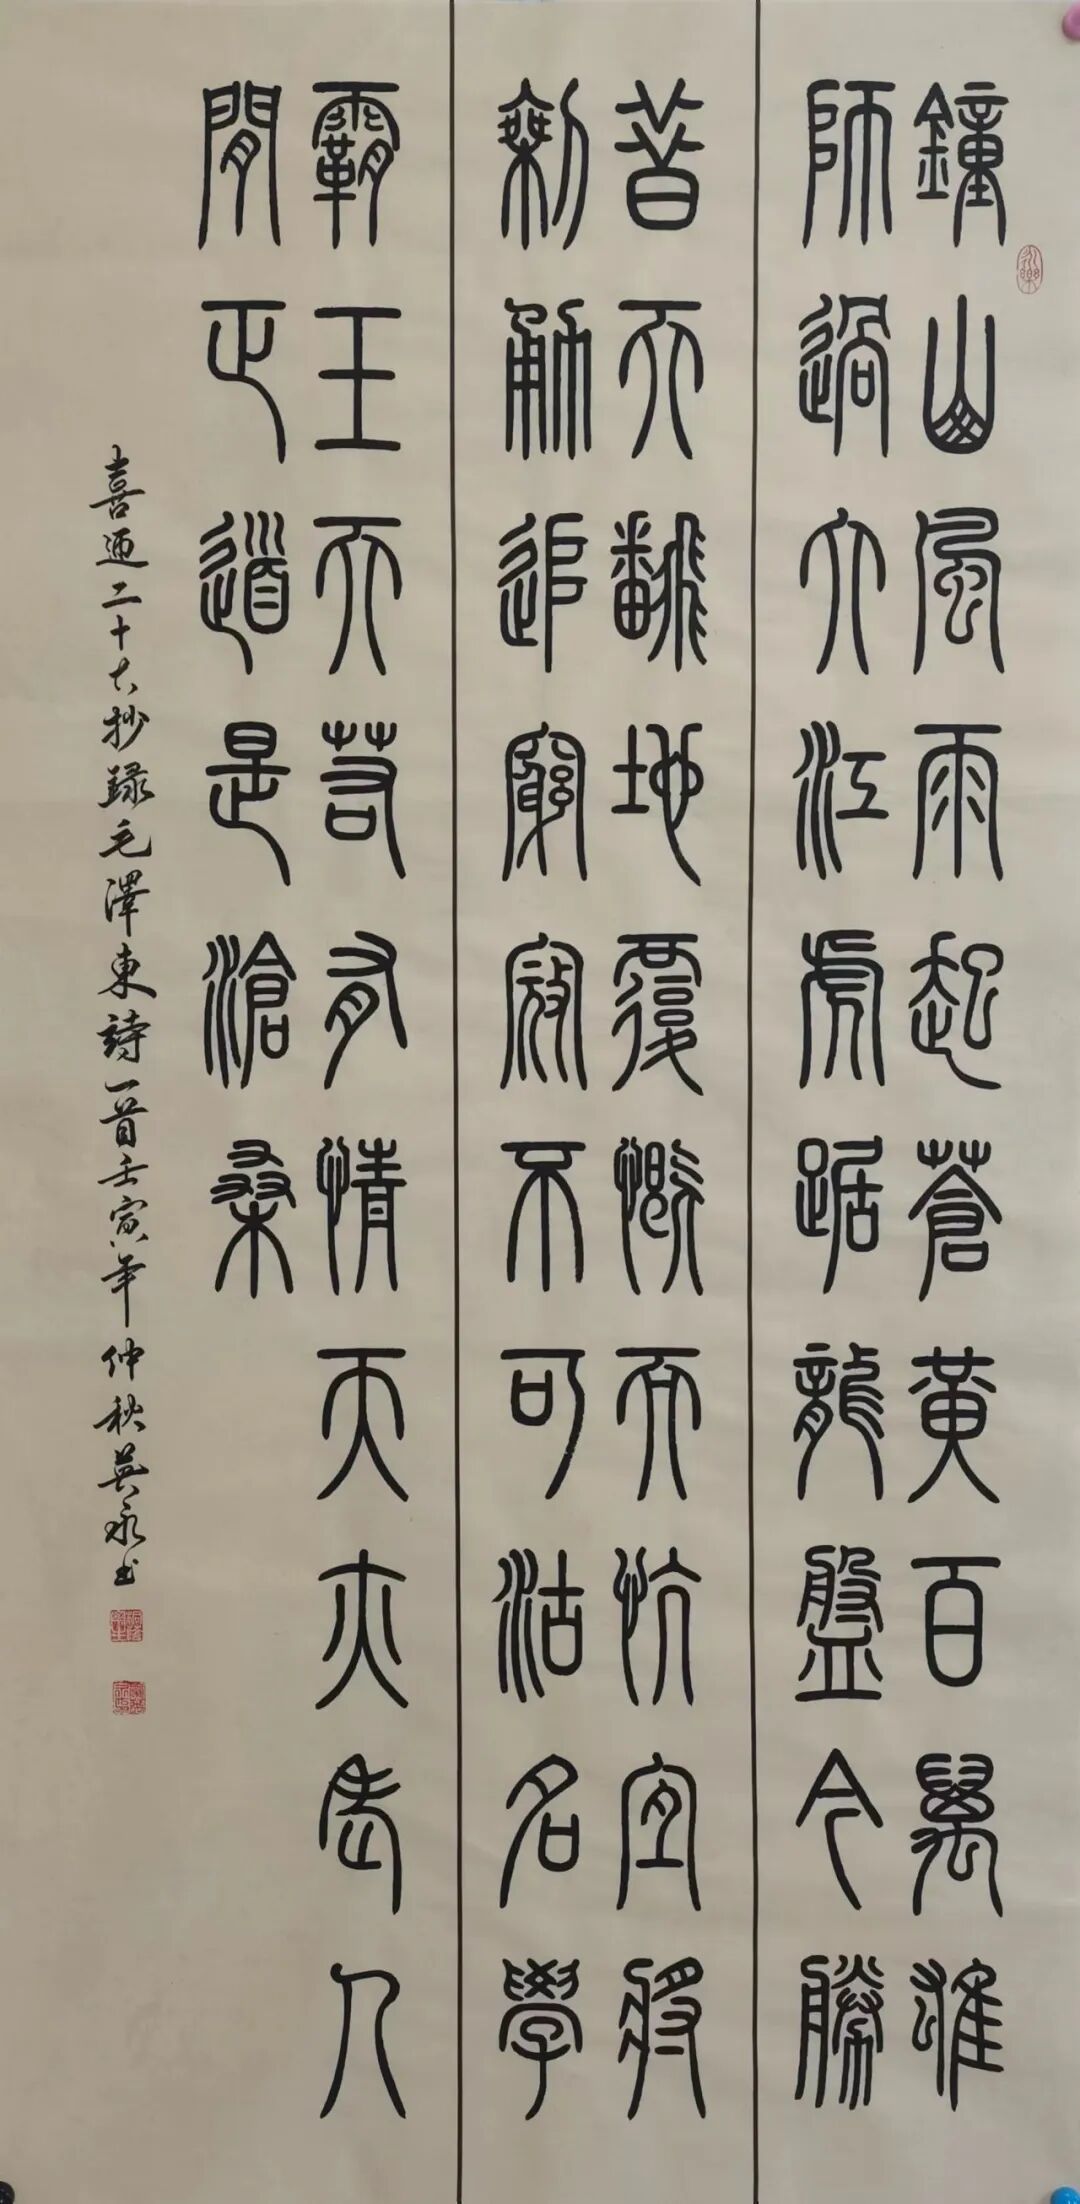 鐘山風雨起蒼黃百萬雄
師過大江虎踞龍盤今勝
昔天翻地覆慨而慷宜將
剩勇追窮寇不可沽名學
霸王天若有情天亦老人
間正道是滄桑
喜迎二十大抄録毛澤東詩一首壬寅年仲秋英永书